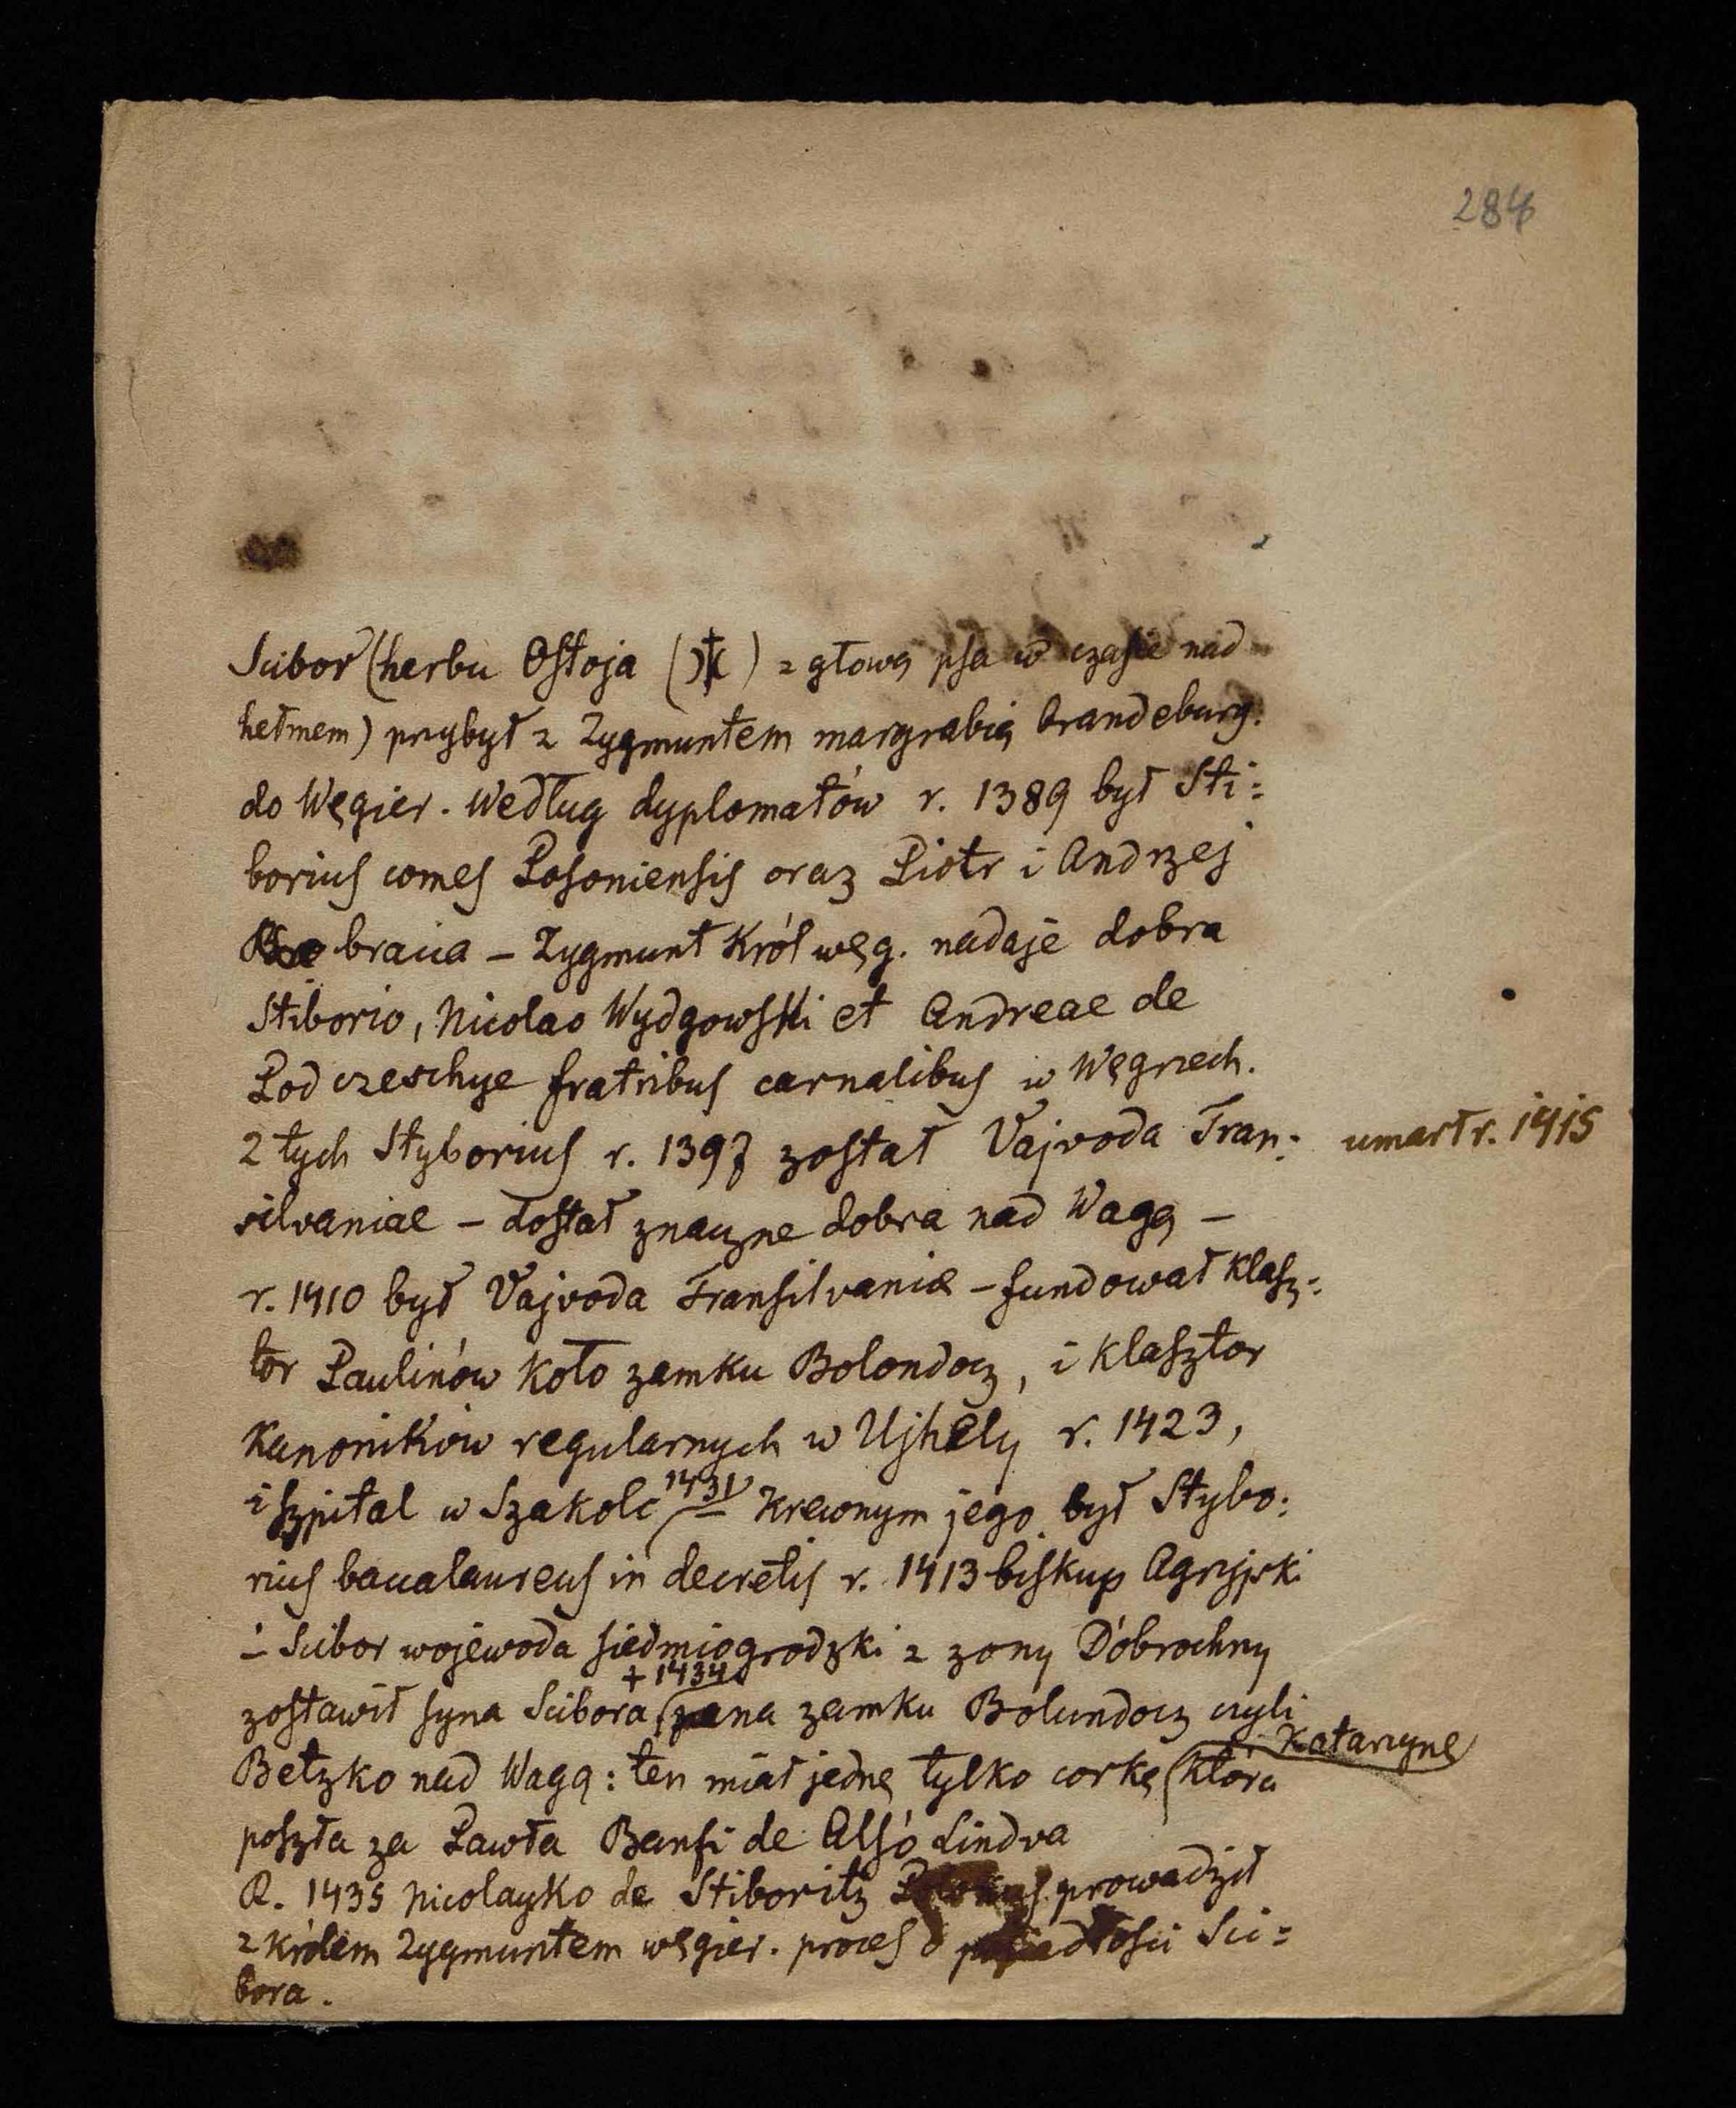 284
Scibor (herbu Ostoja ( ) z głową psa w czasie nad
hełmem) przybył z Zygmuntem margrabią brandeburg.
do Węgier. Według dyplomatów r. 1389 był Sti=
borius comes Posoniensis oraz Piotr i Andrzej
bracia – Zygmunt Król węg. nadaje dobra
Stiborio, Nicolao Wydgowski et Andreae de
Podczeschye fratribus carnalibus w Węgrzech.
z tych Styborius r. 1397 został Vajvoda Tran=
umarł r. 1415
silvaniae – dostał znaczne dobra nad Wagą –
r. 1410 był Vajvoda Transilvaniæ – fundował Klasz=
tor Paulinów koło zamku Bolondocz, i klasztor
Kanoników regularnych w Ujhely r. 1423,
i szpital w Szakolc 1431 – Krewnym jego był Stybo=
rius baccalaureus in decretis r. 1413 biskup Agryjski
– Scibor wojewoda siedmiogrodzki z zony Dobrochny
+ 1434
zostawił syna Scibora, pana zamku Bolundocz czyli
Katarzynę
Betzko nad Wagą: ten miał jednę tylko corkę która
poszła za Pawła Banfi de Alsó Lindva
R. 1435 Nicolayko de Stiboritz Polonus prowadził
z królem Zygmuntem węgier. proces o posiadłosci Sci=
bora.